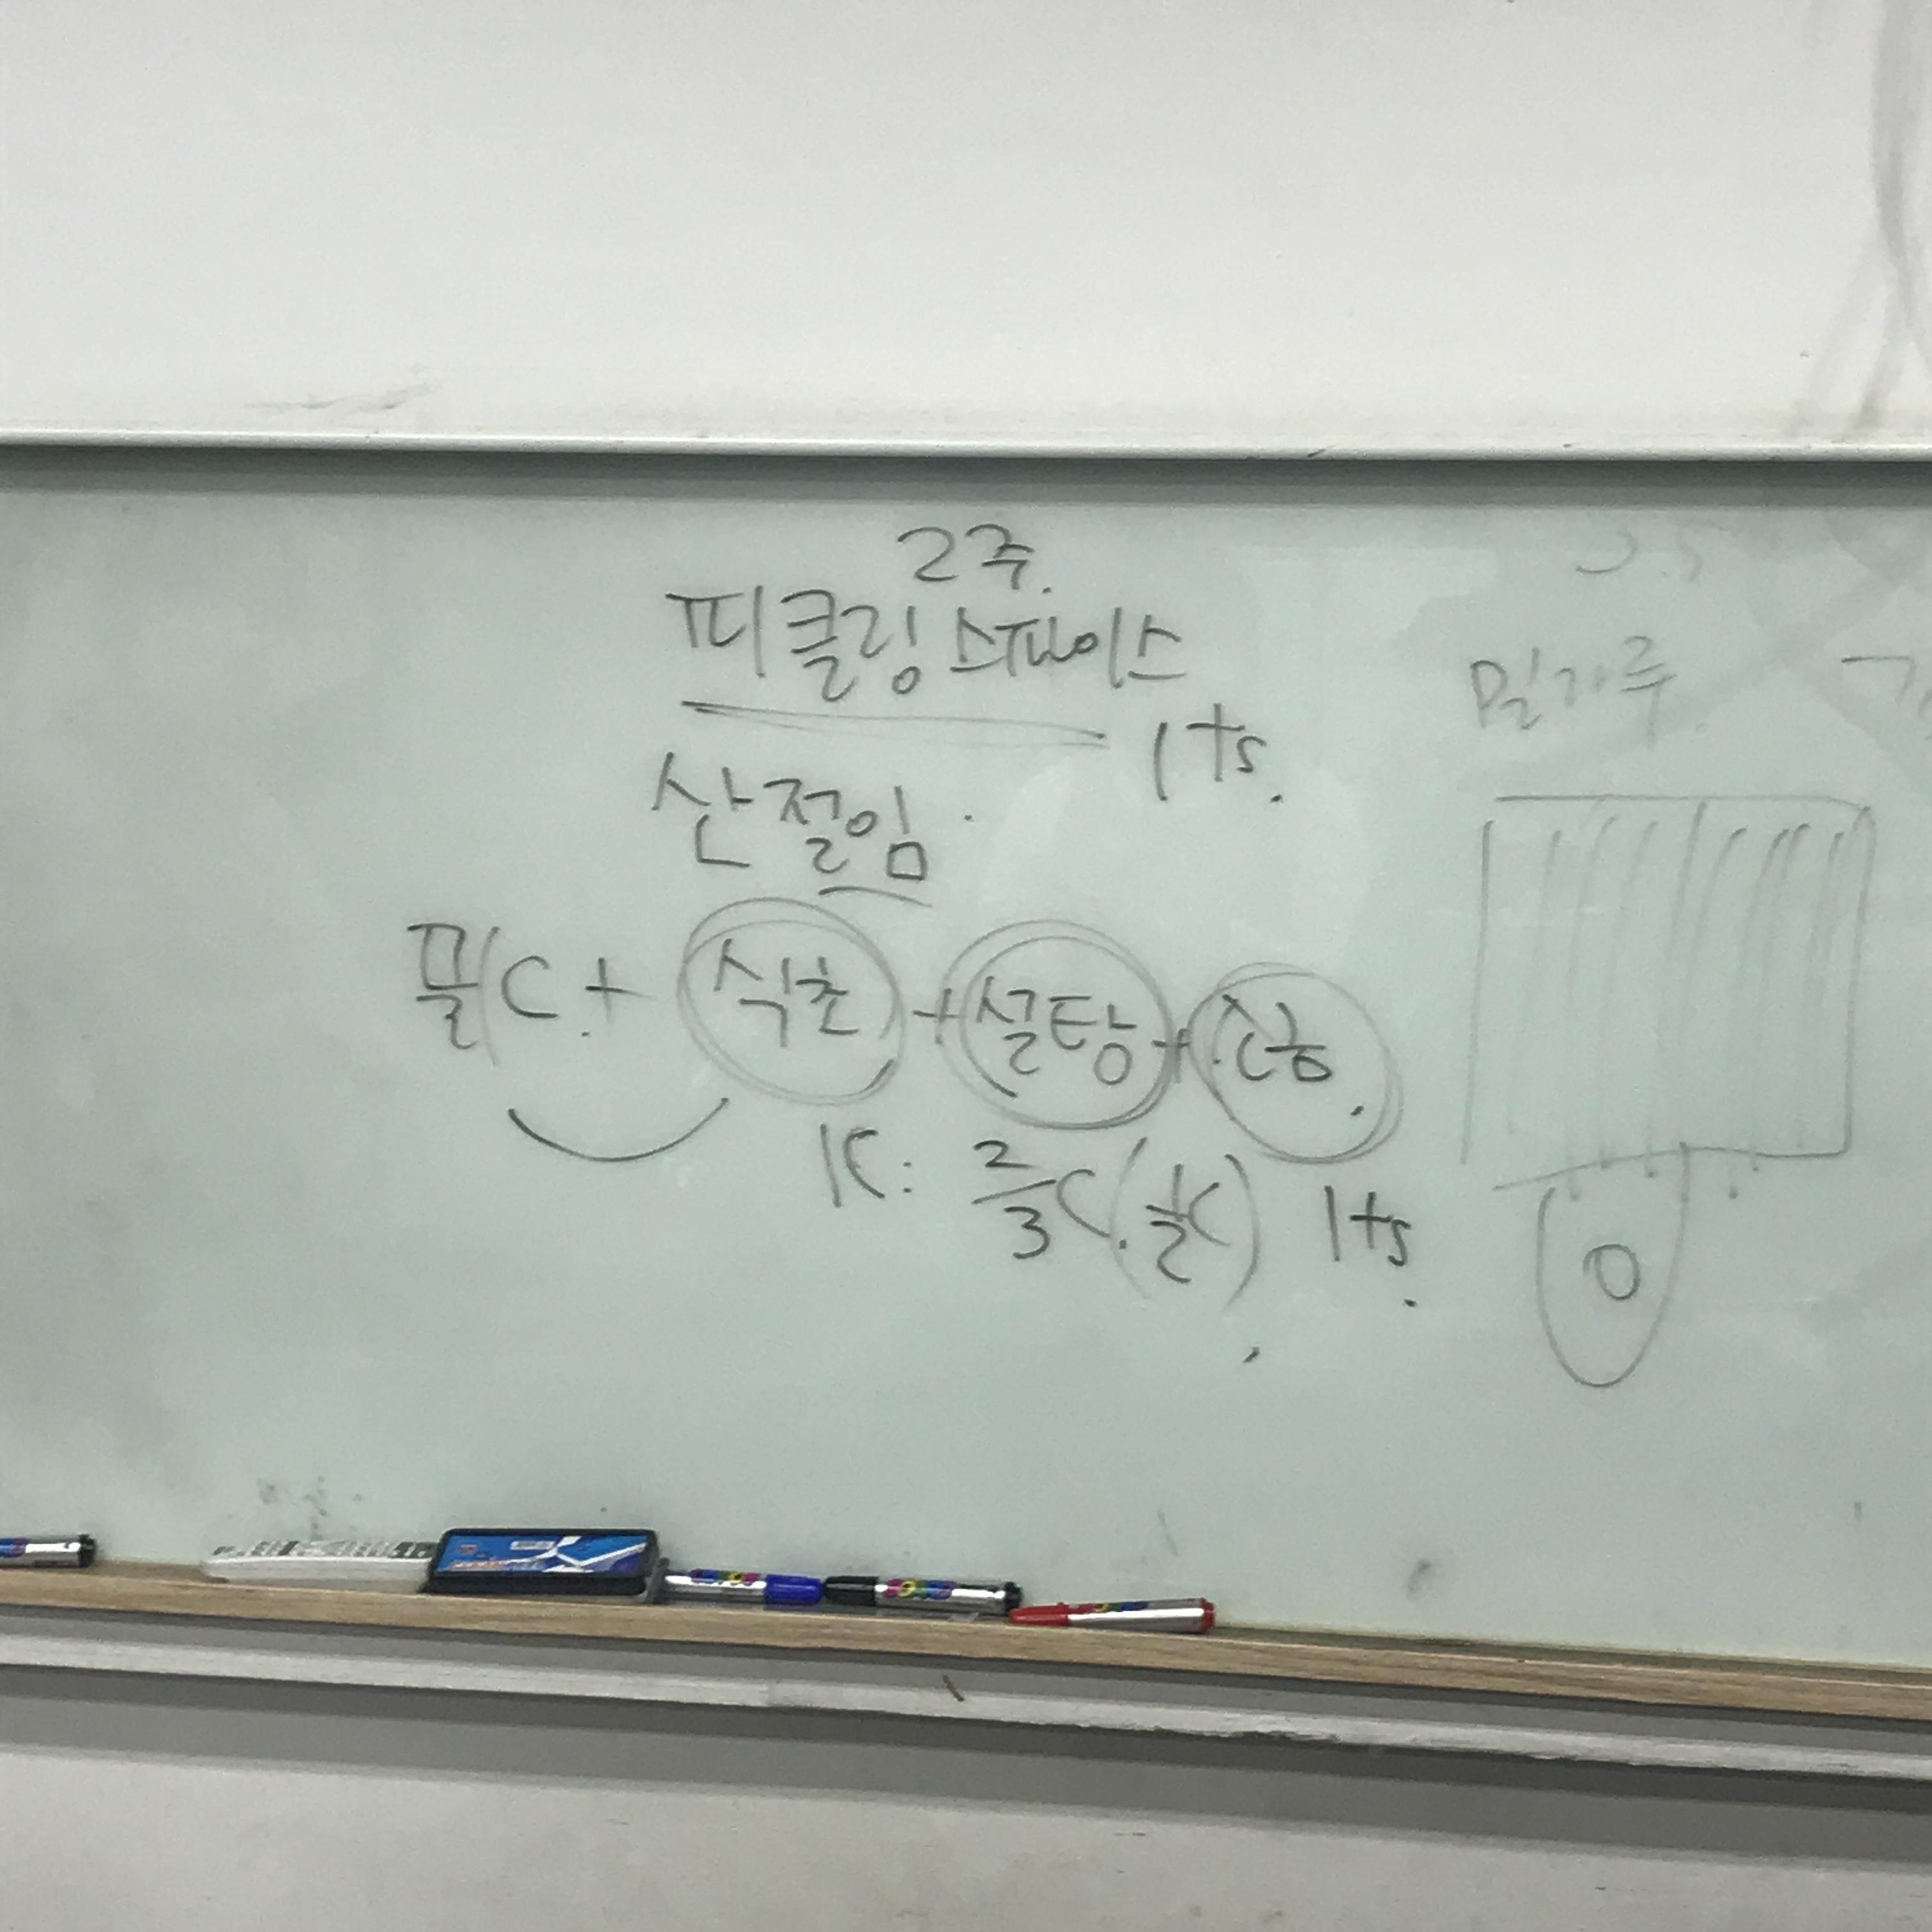 2주.
피클링스파이스
1ts.
산절임.
물1C.+ 식초 + 설탕 + 소금.
1C: 2/3C.(1/2C) 1ts.
밀가루